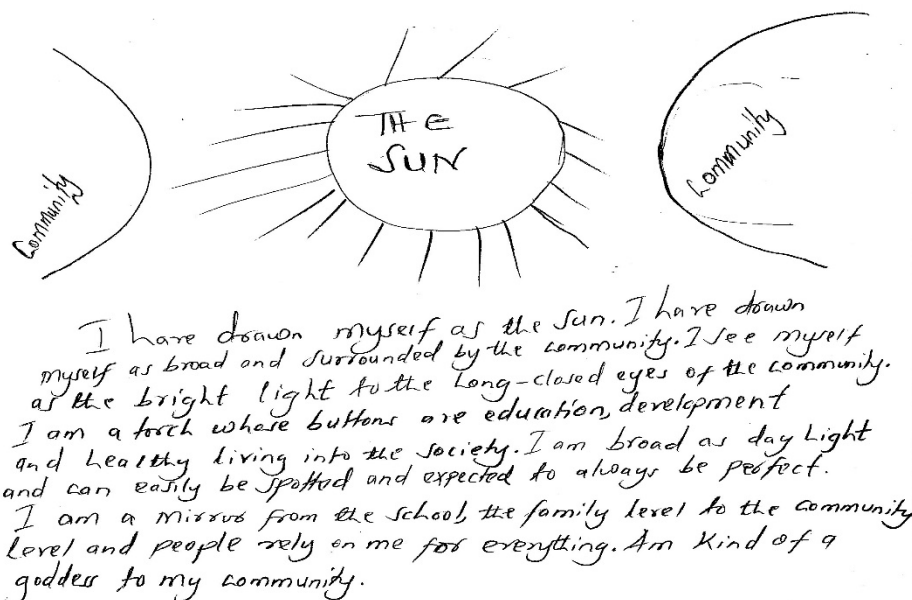 THE
SUN
Community
Community
I have drawn myself as the Sun. I have drawn
myself as broad and surrounded by the community. I see myself
as the bright light to the long-closed eyes of the community.
I am a torch whose buttons are education, development
and healthy living into the society. I am broad as day light
and can easily be spotted and expected to always be perfect.
I am a mirror from the school, the family level to the community
level and people rely on me for everything. Am kind of a
goddess to my community.